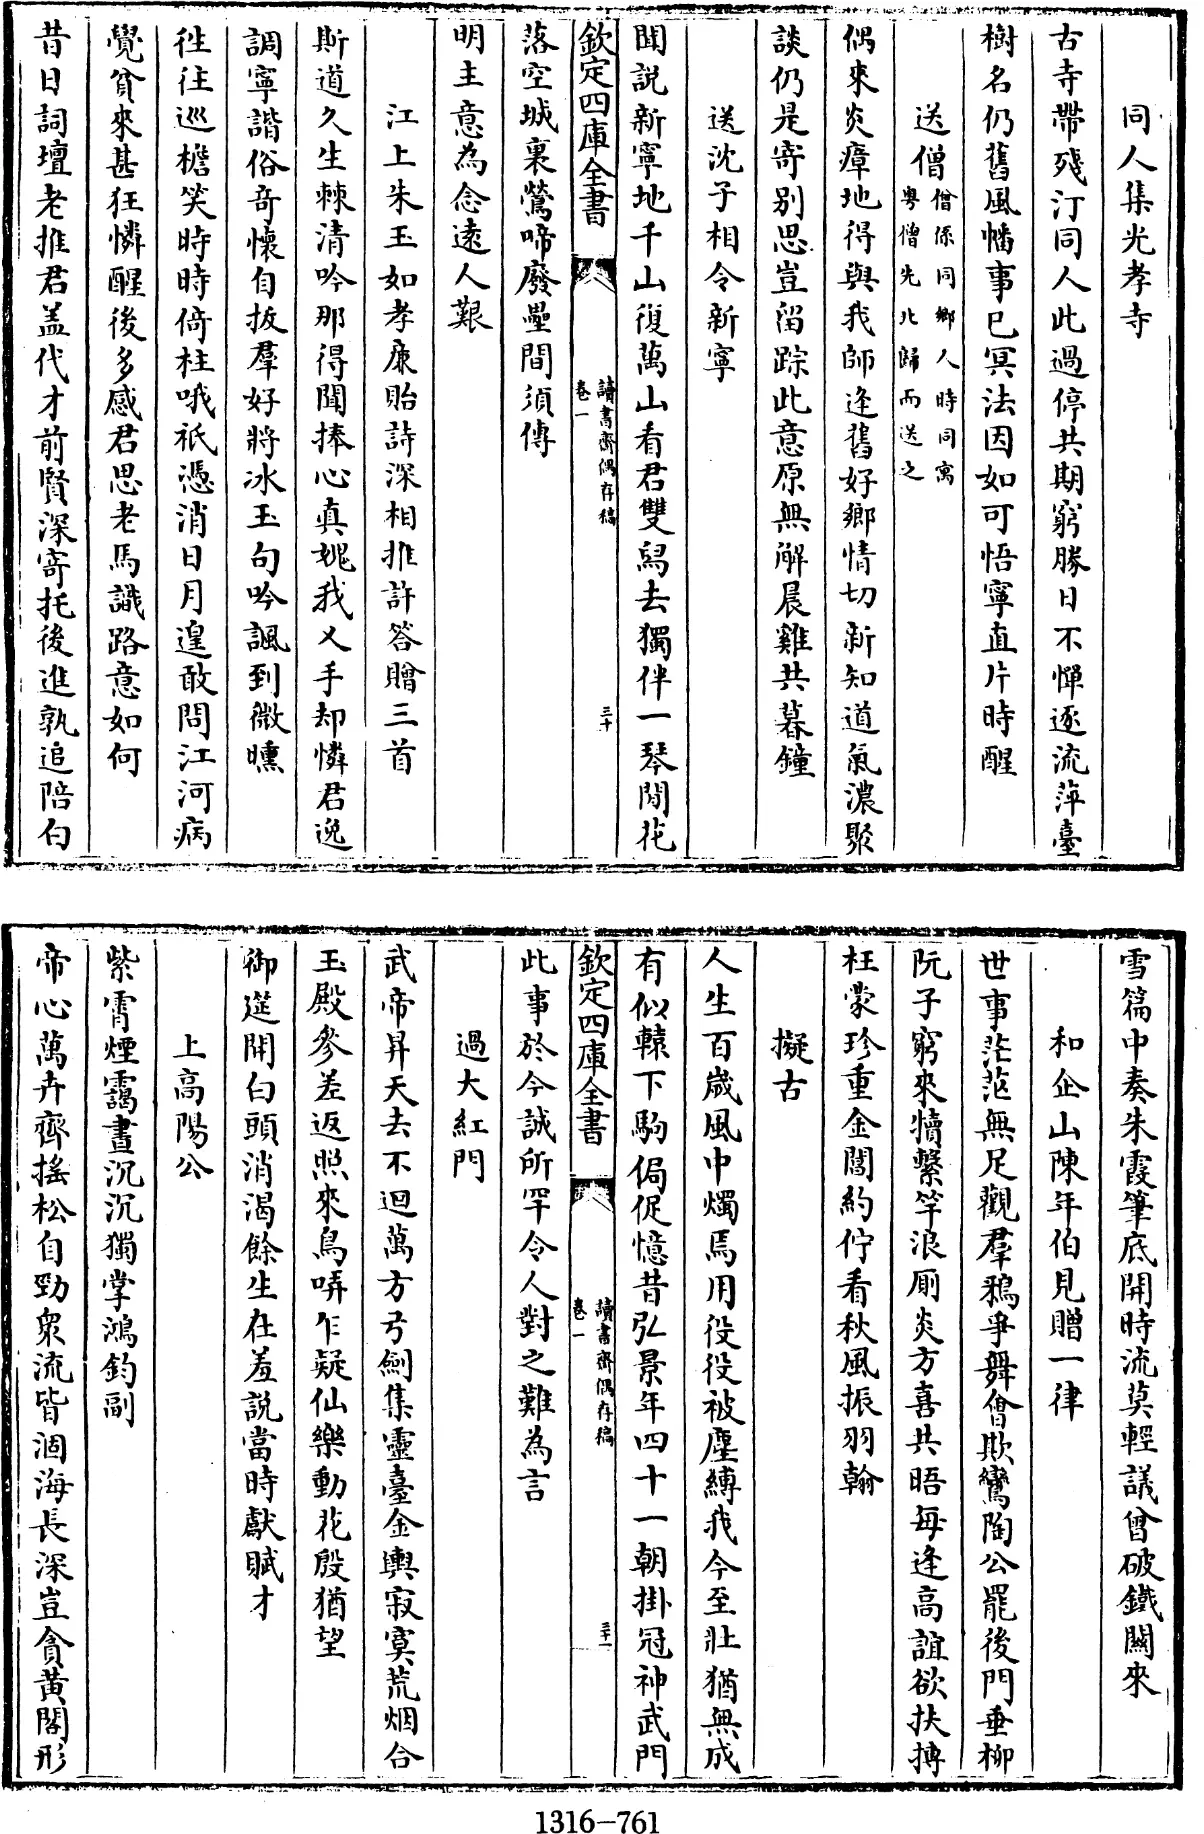 同人集光孝寺
古寺帶殘汀同人此過停共期窮勝日不憚逐流萍臺
樹名仍舊風幡事已冥法因如可悟寧直片時醒
送僧僧係同鄉人時同寓粵僧先北歸而送之
偶來炎瘴地得與我師逢舊好鄉情切新知道氣濃聚
談仍是寄別思豈留踪此意原無解晨雞共暮鐘
送沈子相令新寧
聞說新寧地千山復萬山看君雙舄去獨伴一琴閒花
欽定四庫全書
讀書齋偶存稿
卷一
三十
落空城裏鶯啼廢壘間須傳
明主意為念遠人艱
江上朱玉如孝廉貽詩深相推許答贈三首
斯道久生棘清吟那得聞捧心真媿我乂手却憐君逸
調寧諧俗奇懷自拔羣好將冰玉句吟諷到微曛
徃往巡檐笑時時倚柱哦祇憑消日月遑敢問江河病
覺貧來甚狂憐醒後多感君思老馬識路意如何
昔日詞壇老推君盖代才前賢深寄托後進孰追陪白
雪篇中奏朱霞筆底開時流莫輕議曾破鐵關來
和企山陳年伯見贈一律
世事茫茫無足觀羣鴉爭舞僧欺鸞陶公罷後門垂柳
阮子窮來犢繫竿浪厠炎方喜共晤每逢高誼欲扶摶
枉蒙珍重金閨約佇看秋風振羽翰
擬古
人生百歲風中燭焉用役役被塵縛我今至壯猶無成
有似轅下駒侷促憶昔弘景年四十一朝掛冠神武門
欽定四庫全書
讀書齋偶存稿
卷一
三十一
此事於今誠所罕令人對之難為言
過大紅門
武帝昇天去不迴萬方弓劍集靈臺金輿寂寞荒烟合
玉殿參差返照來鳥哢乍疑仙樂動花殷猶望
御筵開白頭消渴餘生在羞說當時獻賦才
上高陽公
紫霄煙靄晝沉沉獨掌鴻鈞副
帝心萬卉齊搖松自勁衆流皆涸海長深豈貪黃閣形
1316-761